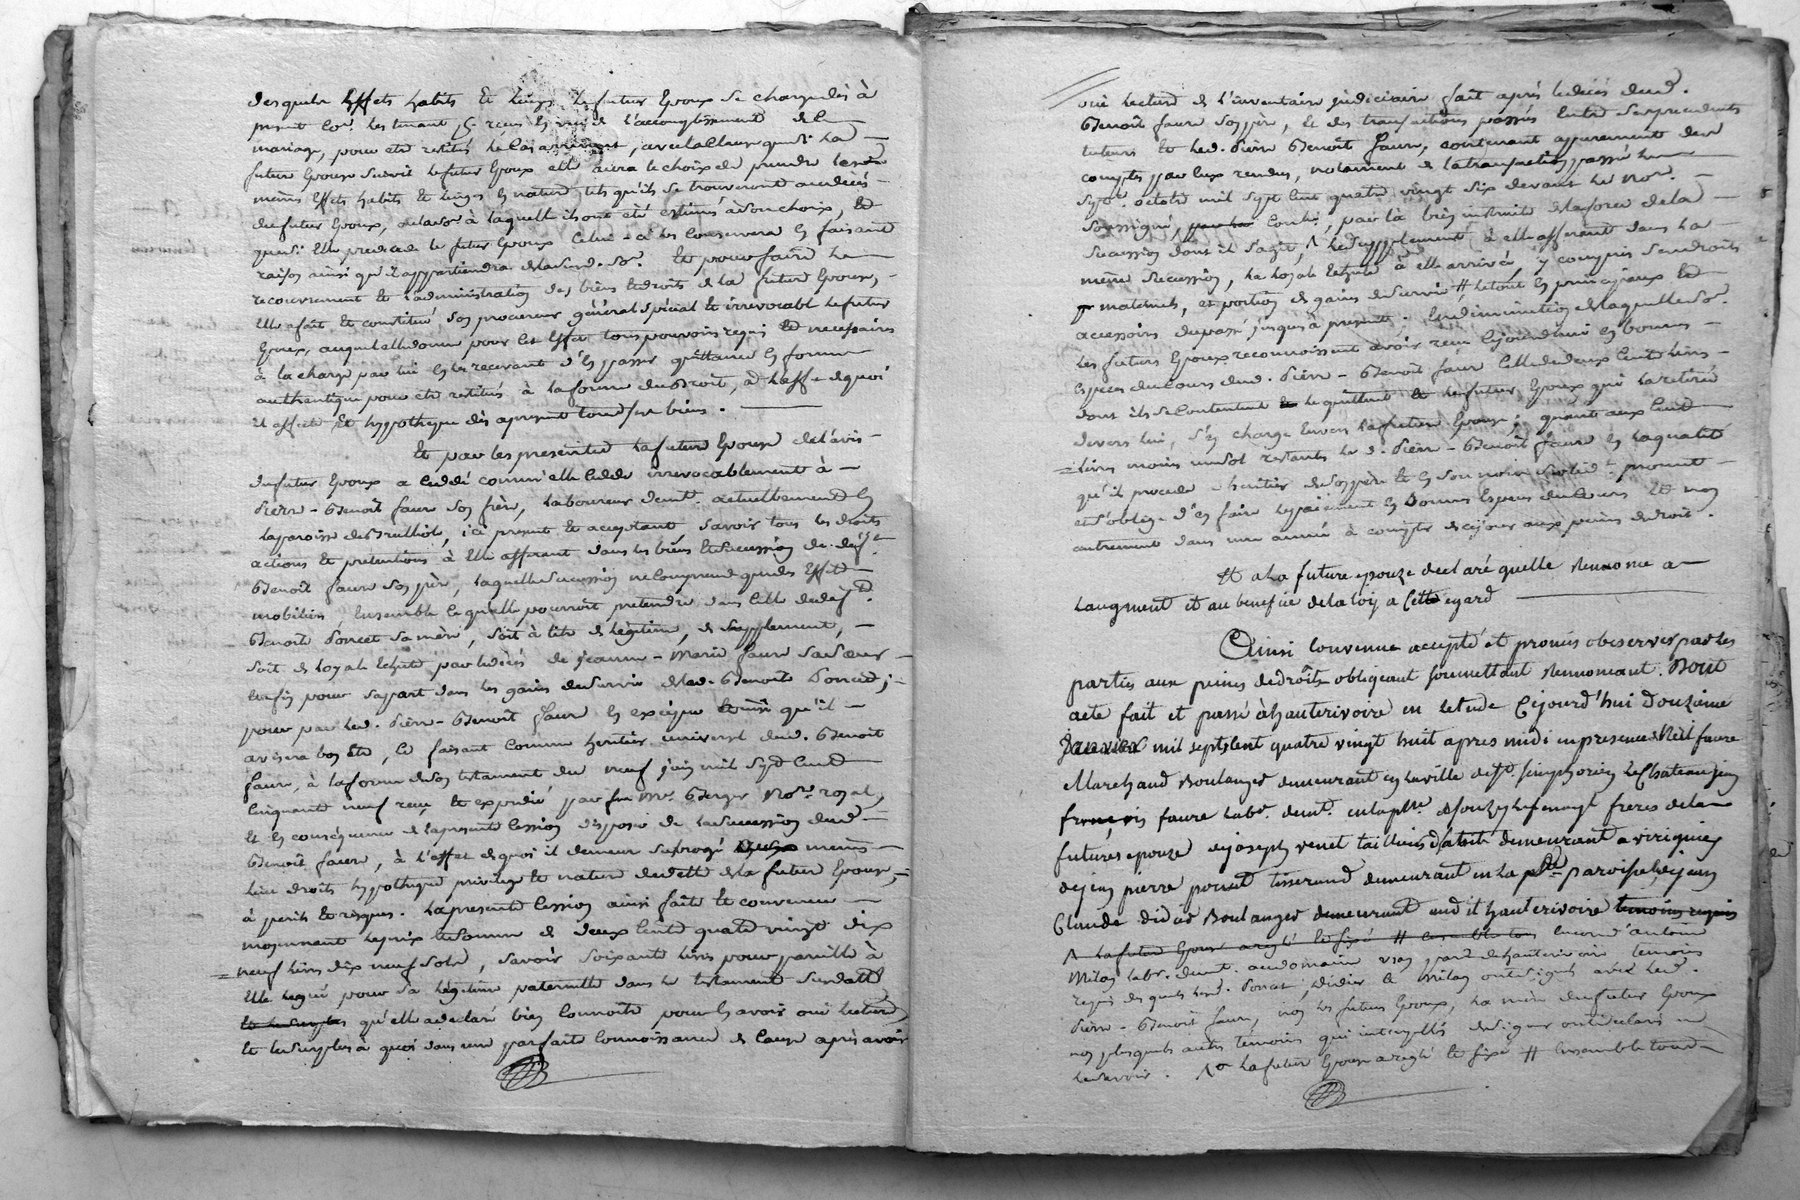 desquels Effets habits et linges le futur Epoux se charge dès à
present comme les tenant reçus en vue de l'accomplissement de
mariage, pour etre restitués le cas arrivant, avec la clause que si la
future Epouse survit le futur Epoux elle aura le choix de prendre les
mêmes Effets habits et linges en nature tels qu'ils se trouveront au décès
du futur Epoux, ou la so^e. à laquelle ils ont été estimés à son choix, Et
quasi Elle predecede le futur Epoux Celui-ci les conservera en faisant
raison ainsi qu'il appartiendra de lasusd. So^e. Et pour faire le
recouvrement et l'administration des biens et droits de la future Epouse,
Elle a fait et constitué son procureur général spécial et irrevocable le futur
Epoux, auquel elle donne pour cet effet tous pouvoirs requis et necessaires
à la charge par lui en les recevant d'en passer quittance en forme
authentique pour etre restitués à la forme du droit, à l'effet de quoi
il affecte et hypotheque dès apresent tous ses biens.
Et par les presentes la future Epouse de l'avis
du futur Epoux a cedé comm'elle cede irrevocablement à
Pierre-Benoît faure son frère, laboureur dem^t. actuellement en
la paroisse de Brullioles, ici present et acceptant savoir tous les droits
actions et pretentions à Elle afferant dans les biens et succession de déf^t.
Benoît faure son père, laquelle succession ne comprend que des Effets
mobiliers, Ensemble ce qu'elle pourroit pretendre dans celle de déf^te.
Benoite Poncet sa mère, soit à titre de légitime, de supplement,
soit de loyale echute par le décès de jeanne-Marie faure sa soeur
enfin pour sa part dans les gains de survie de lad. Benoite Poncet,
pour par led. Pierre-Benoît faure en exciper ainsi qu'il
avisera bon Etre, ce faisant comme heritier universel dud. Benoît
faure, à la forme de son testament du neuf juin mil sept cent
cinquante neuf reçu et expedié par feu M^e. Berger No^re. royal,
et en conséquence de la presente cession disposer de la succession dud.
Benoît faure, à l'effet de quoi il demeure subrogé mêmes
lieu droits hypotheque privilege et nature de dette de la future Epouse,
à perils et risques. la presente cession ainsi faite et convenue
moyennant le prix et somme de deux cents quatre vingt dix
neuf livres dix neuf sols, savoir soixante livres pour pareille à
Elle leguée pour sa légitime paternelle dans le testament surdatté
et le surplus qu'elle a declaré bien connoitre pour en avoir oui lecture,
et le surplus à quoi dans une parfaite connoissance de cause après avoir
oui lecture de l'inventaire judiciaire fait après le décès dud.
Benoît faure son père, et des transactions passées entre ses precedents
tuteurs et led. Pierre Benoît faure, contenant apurement des
comptes par eux rendus, notament de la transaction passée le
sept octobre mil sept cent quatre vingt six devant le No^re.
soussigné, Contr^é, par là bien instruite de la force de la
succession dont il s'agit, /\ le supplement à elle afferant dans la
même succession, la loyale echute à elle arrivée y compris ses droits
maternels, et portion de gains de survie # le tout en principaux et
accessoires du passé jusques à present. En diminution de laquelle so^e.
les futurs Epoux reconnoissent avoir reçu cejourdhui en bonnes
Especes du cours dud. Pierre-Benoît faure celle de deux cents livres
dont ils se contentent le quittent et le futur Epoux qui la retirée
devers lui, s'en charge envers la future Epouse; quant aux cent
livres moins un sol restants led. Pierre-Benoît faure en la qualité
qu'il procede d'heritier de son père et en son nom promet
et s'oblige d'en faire le payement en bonnes Especes du Cours et non
autrement dans une année à compter de cejour aux peines de droit.
Et a la future epouze declaré quelle renonce a
laugment et au benefice de la loy a Cette egard
Ainsi Convenue accepté et promis observer par les
parties aux peines de droits obligeant soumettant Rennoncant. Dont
acte fait et passé à hauterivoire en letude Cejourd'hui Douzieme
janvier mil sept Cent quatre vingt huit apres midi en presence de Neil faure
Marchand Boulanger demeurant en la ville de St. simphorien le Chateau jean
françois faure lab^r. dem^t. en la p^sse. de souzy l'argentiere freres de la
future epouze de joseph venet tailleur d'abits demeurant a virigneu
de jean pierre poncet tisserand demeurant en la p^te. paroisse de jean
Claude didier Boulanger demeurant aud it hauterivoire temoins requis
/\ la future Epouse a reglé et fixé # ensemble tous encore d'antoine
Milan labr. dem^t. au domaine p^sse d'hauterivoire temoins
requis desquels led. Poncet, Didier & Milan ont signé avec led.
Pierre-Benoît faure, non les futurs Epoux, la mère du futur Epoux
ni plusquels autres témoins qui interpellés de signer ont declaré ne
le savoir. /\ la future Epouse a reglé et fixé # Ensemble tous